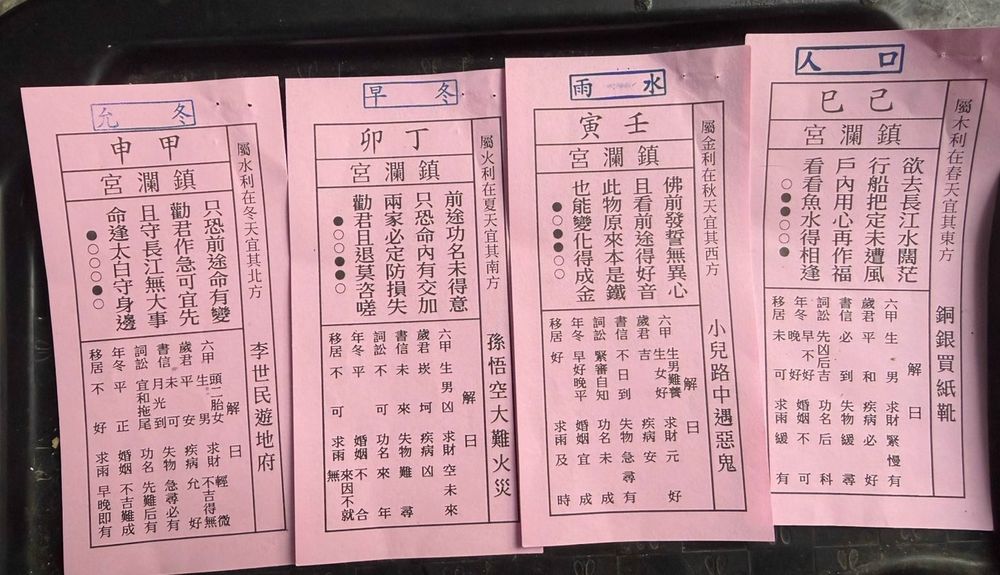 口人
己巳
鎮瀾宮
屬木利在春天宜其東方
欲去長江水闊茫
行船把定未遭風
戶內用心再作福
看看魚水得相逢
○●●○○○
銅銀買紙靴
解曰
六甲 生男
歲君 平和
書信 必到
詞訟 先凶后吉
年冬 早不好晚好
移居 未可
求財 緊慢有
疾病 必好
失物 緩好
功名 后科
婚姻 不可
求雨 緩有
水雨
壬寅
鎮瀾宮
屬金利在秋天宜其西方
佛前發誓無異心
且看前途得好音
此物原來本是鐵
也能變化得成金
●○●●○○
小兒路中遇惡鬼
解曰
六甲 生男難養生女好
歲君 吉
書信 不日到
詞訟 緊審自知
年冬 早好晚平
移居 好
求財 元好
疾病 安
失物 急尋有
功名 未成
婚姻 宜成
求雨 及時
冬早
丁卯
鎮瀾宮
屬火利在夏天宜其南方
前途功名未得意
只恐命內有交加
兩家必定防損失
勸君且退莫咨嗟
●○○●●○
孫悟空大難火災
解曰
六甲 生男凶
歲君 崁坷
書信 未來
詞訟 不可
年冬 平
移居 不可
求財 空未來
疾病 凶
失物 難尋
功名 來年
婚姻 不合
求雨 來因不就無
冬允
甲申
鎮瀾宮
屬水利在冬天宜其北方
只恐前途命有變
勸君作急可宜先
且守長江無大事
命逢太白守身邊
●○○○●○
李世民遊地府
解曰
六甲 頭二胎女生男
歲君 平安
書信 未可月光到
詞訟 宜和拖尾
年冬 平正
移居 不好
求財 輕微不吉得無
疾病 允好
失物 急尋必有
功名 先難后有
婚姻 不吉難成
求雨 早晚即有